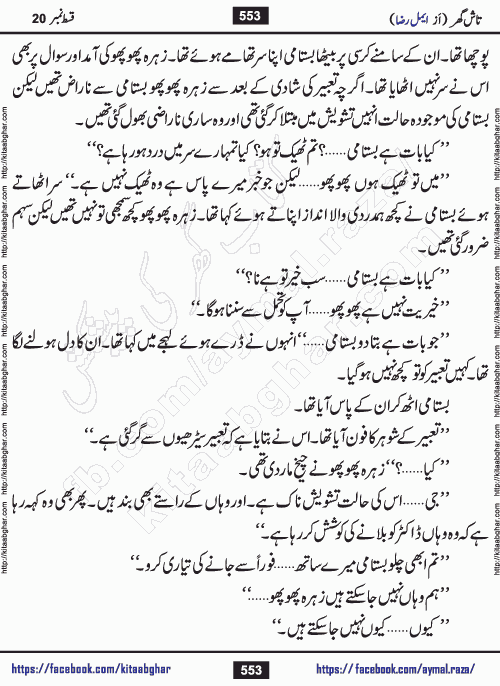 تاش گھر (از ایمل رضا) 553 قسط نمبر 20
پوچھا تھا۔ ان کے سامنے کرسی پر بیٹھا بستامی اپنا سر تھامے ہوئے تھا۔ زہرہ پھوپھو کی آمد اور سوال پر بھی
اس نے سر نہیں اٹھایا تھا۔ اگرچہ تعبیر کی شادی کے بعد سے زہرہ پھوپھو بستامی سے ناراض تھیں لیکن
بستامی کی موجودہ حالت انہیں تشویش میں مبتلا کر گئی تھی اور وہ ساری ناراضی بھول گئی تھیں۔
’’کیا بات ہے بستامی......؟ تم ٹھیک تو ہو؟ کیا تمہارے سر میں درد ہو رہا ہے؟‘‘
’’میں تو ٹھیک ہوں پھوپھو......لیکن جو خبر میرے پاس ہے وہ ٹھیک نہیں ہے۔‘‘ سر اٹھاتے
ہوئے بستامی نے کچھ ہمدردی والا انداز اپناتے ہوئے کہا تھا۔ زہرہ پھوپھو کچھ سمجھی تو نہیں تھیں لیکن سہم
ضرور گئی تھیں۔
’’کیا بات ہے بستامی......سب خیر تو ہے نا؟‘‘
’’خیریت نہیں ہے پھوپھو......آپ کو تحمل سے سننا ہوگا۔‘‘
’’جو بات ہے بتا دو بستامی......‘‘ انہوں نے ڈرے ہوئے لہجے میں کہا تھا۔ ان کا دل ہولنے لگا
تھا۔ کہیں تعبیر کو تو کچھ نہیں ہو گیا۔
بستامی اٹھ کر ان کے پاس آیا تھا۔
’’تعبیر کے شوہر کا فون آیا تھا۔ اس نے بتایا ہے کہ تعبیر سیڑھیوں سے گر گئی ہے۔‘‘
’’کیا......؟‘‘ زہرہ پھوپھو نے چیخ مار دی تھی۔
’’جی......اس کی حالت تشویش ناک ہے۔ اور وہاں کے راستے بھی بند ہیں۔ پھر بھی وہ کہہ رہا
ہے کہ وہ وہاں ڈاکٹر کو بلانے کی کوشش کر رہا ہے۔‘‘
’’تم ابھی چلو بستامی میرے ساتھ......فوراً سے جانے کی تیاری کرو۔‘‘
’’ہم وہاں نہیں جا سکتے ہیں زہرہ پھوپھو......‘‘
’’کیوں......کیوں نہیں جا سکتے ہیں۔‘‘
https://facebook.com/kitaabghar 553 https://facebook.com/aymal.raza/
http://kitaabghar.com http://kitaabghar.com http://kitaabghar.com http://kitaabghar.com
http://kitaabghar.com http://kitaabghar.com http://kitaabghar.com http://kitaabghar.com
fb.com/aymal.raza
kitaabghar.com